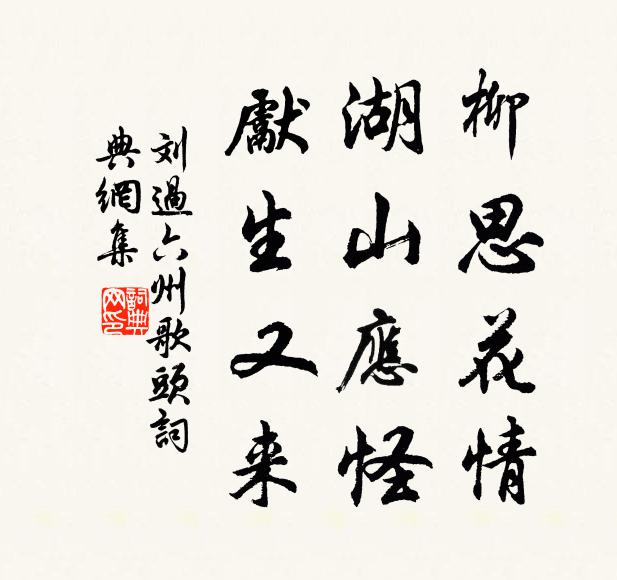 柳思花情
湖山應怪
獻生又来
刘過六州歌頭詞
典網集
詞典
网印